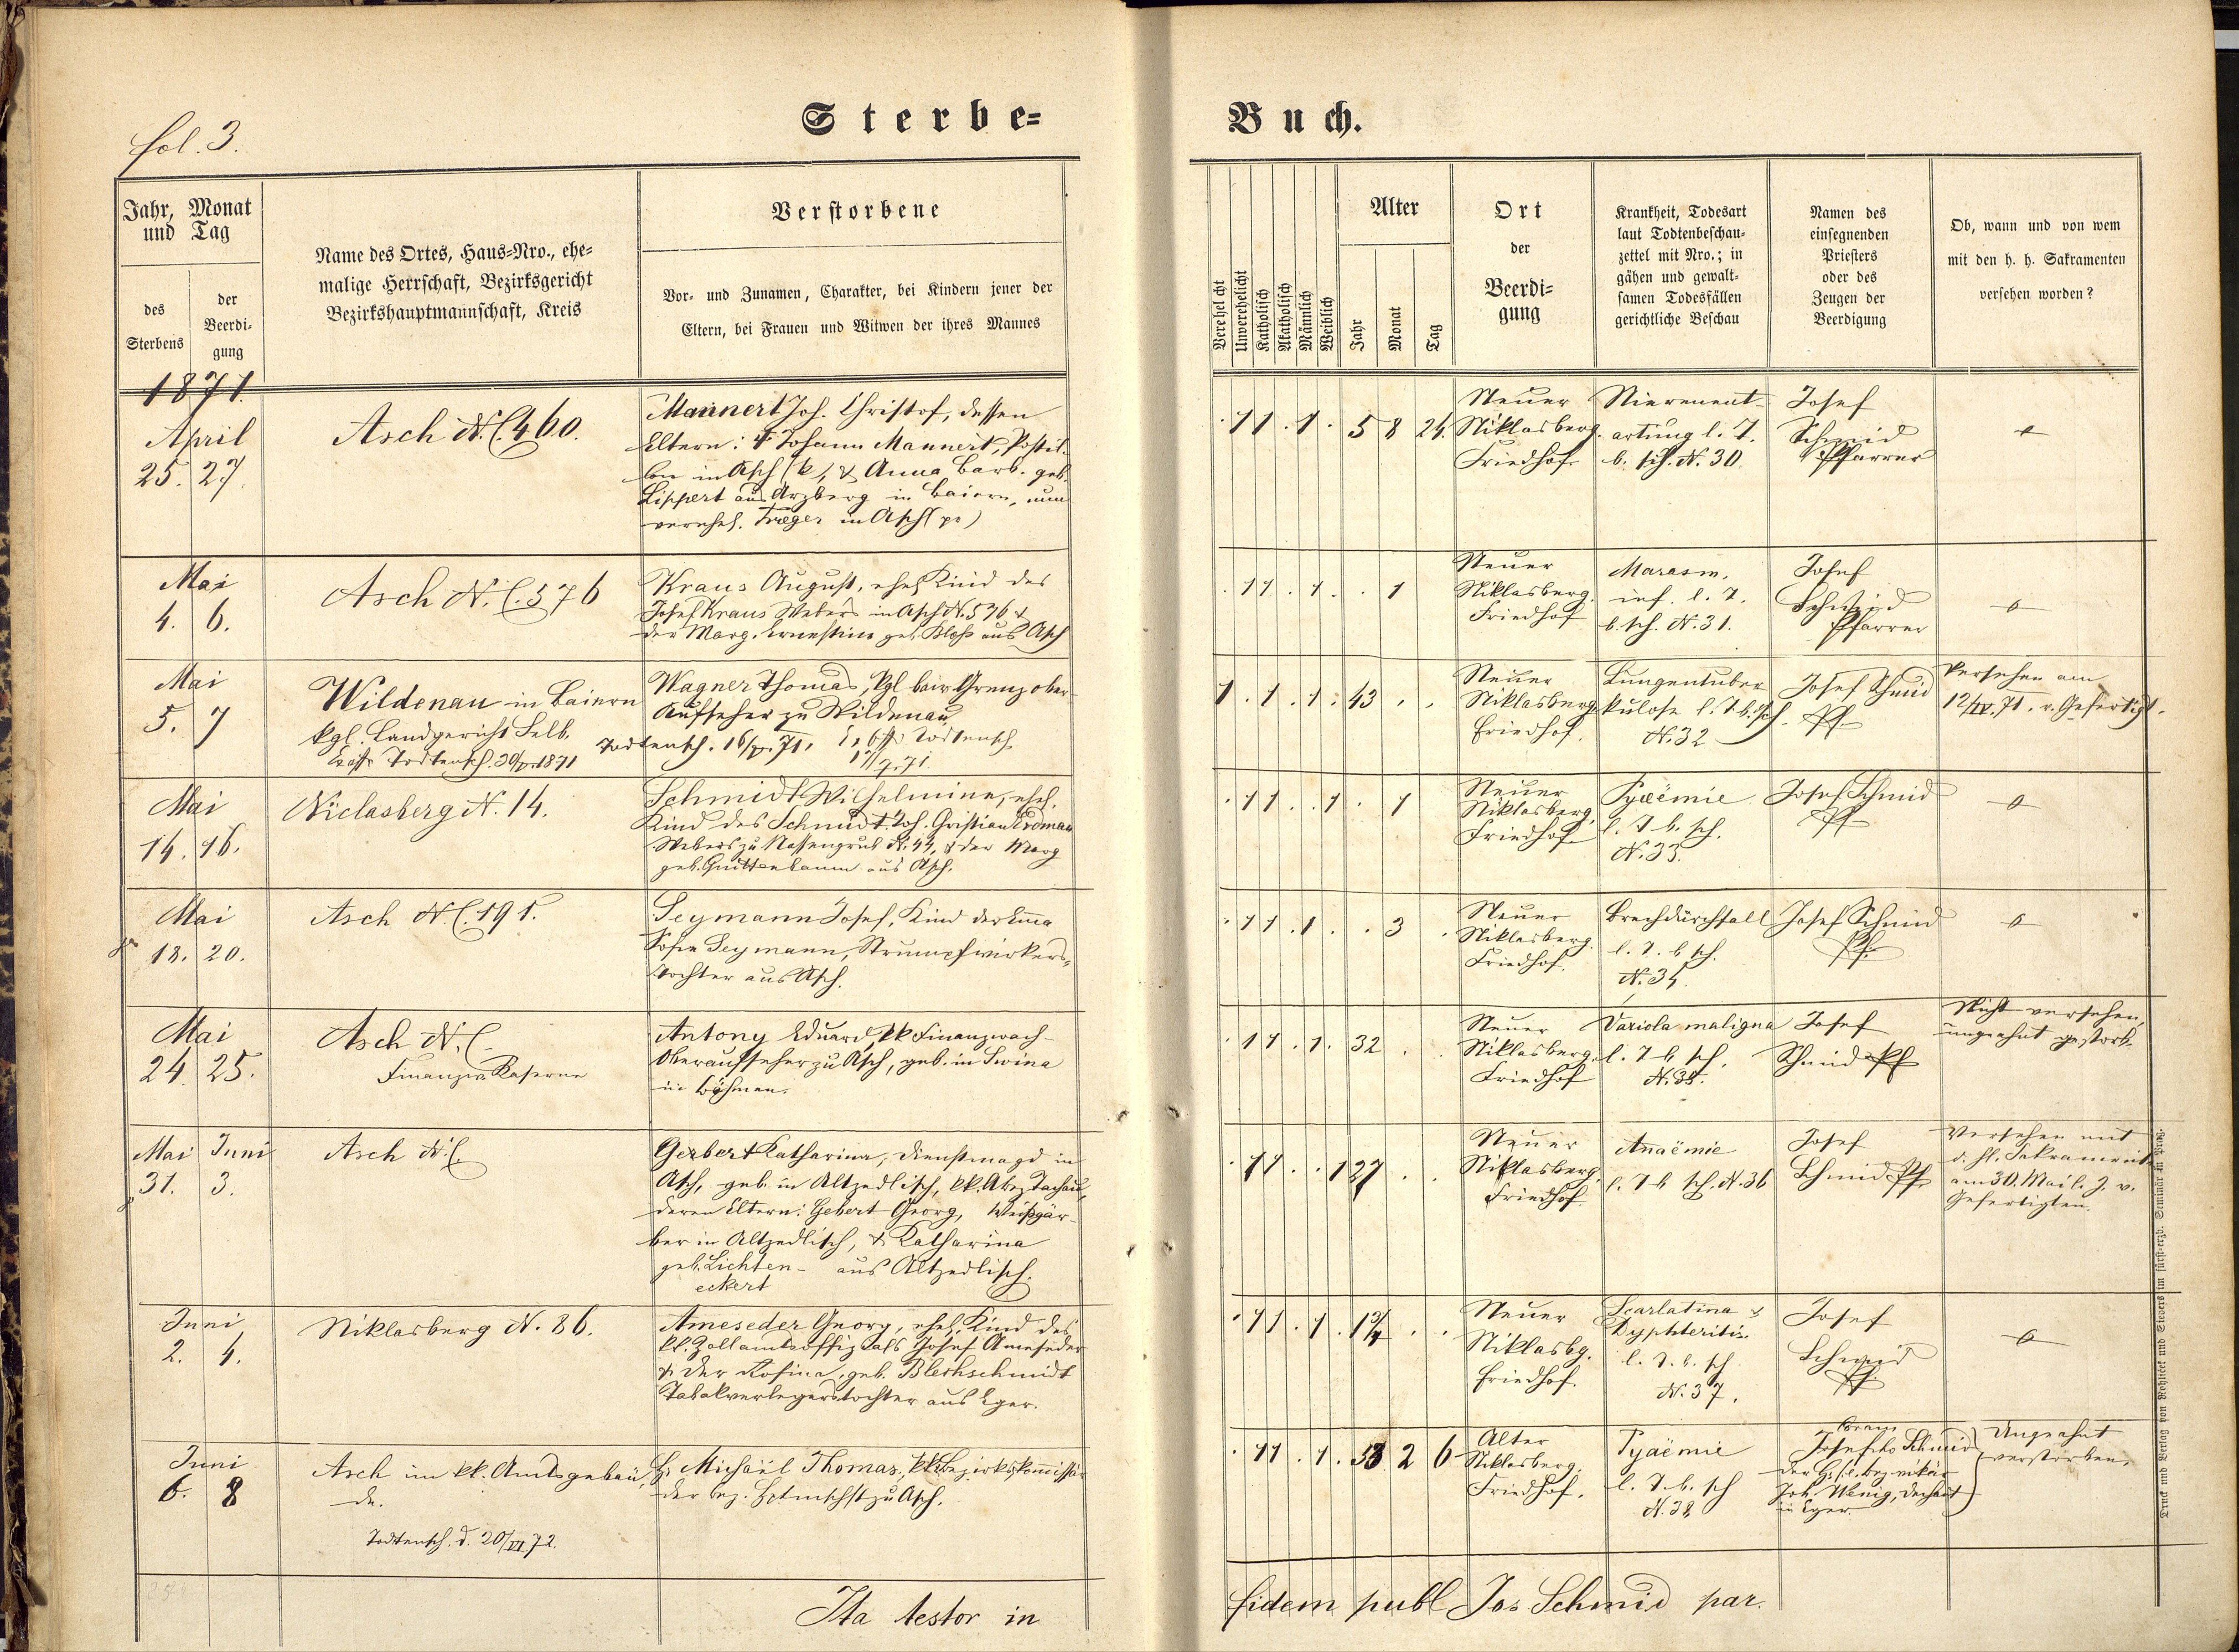 fol. 3.
Sterbe=
Buch.
Jahr, Monat
und Tag
des
Sterbens
der
Beerdi=
gung
Name des Ortes, Haus=Nro., ehe=
malige Herrschaft, Bezirksgericht
Bezirkshauptmannschaft, Kreis
Verstorbene
Vor= und Zunamen, Charakter, bei Kindern jener der
Eltern, bei Frauen und Witwen der ihres Mannes
Verehelicht
Unverehelicht
Katholisch
Akatholisch
Männlich
Weiblich
Alter
Jahr
Monat
Tag
Ort
der
Beerdi=
gung
Krankheit, Todesart
laut Todtenbeschau=
zettel mit Nro.; in
gähen und gewalt=
samen Todesfällen
gerichtliche Beschau
Namen des
einsegnenden
Priesters
oder des
Zeugen der
Beerdigung
Ob, wann und von wem
mit den h. h. Sakramenten
versehen worden?
1871
April
25. 27.
Asch N. C. 460.
Mannert Joh. Christof, dessen
Eltern: † Johann Mannert, Postil-
lon in Asch (k), & Anna Barb. geb.
Lippert aus Arzberg in Baiern, nun
verehel. Träger in Asch (pr)
. 1 1 . 1 . 5 8 24.
Neuer
Niklasberg.
Friedhof.
Nierenent-
artung l. T.
b. sch. N. 30.
Josef
Schmid
Pfarrer
Mai
4. 6.
Asch N. C. 576
Kraus August, ehel. Kind des
Josef Kraus Webers in Asch N. 576 &
der Marg. Ernestine geb. Kloß aus Asch
. 1 1 . 1 . . 1
Neuer
Niklasberg.
Friedhof
Marasm.
inf. l. T.
b. sch. N. 31.
Josef
Schmid
Pfarrer
Mai
5. 7
Wildenau in Baiern
kgl. Landgericht Selb.
Todtensch. 30/ 1871
Wagner Thomas, kgl. bair. Grenzober-
Aufseher zu Wildenau
Todtensch. 16/ 71. Todtensch.
1 . 1 . 1 . 43 . .
Neuer
Niklasberg.
Friedhof.
Lungentuber-
kulose l. T. b. sch.
N. 32
Josef Schmid
Pf
Versehen am
12/IV. 71. v. Gefertigt.
Mai
14. 16.
Niclasberg N. 14.
Schmidt Wilhelmine, ehel.
Kind des Schmidt Joh. Christian Erdman
Webers zu Nassengrub N. 44, & der Marg
geb. Güttenbaum aus Asch.
. 1 1 . . 1 . 1
Neuer
Niklasberg.
Friedhof.
Pyäemie
l. T. b. sch.
N. 33.
Josef Schmid
Pf
Mai
18. 20.
Asch N. C. 191.
Seymann Josef, Kind der Emma
Sofie Seymann, Strumpfwirkers=
tochter aus Asch.
. 1 1 . 1 . . 3 .
Neuer
Niklasberg.
Friedhof.
Brechdurchfall
l. T. b. sch.
N. 34.
Josef Schmid
Pf.
Mai
24. 25.
Asch N. C.
Finanz Kaserne
Antony Eduard, kk Finanzwach-
Oberaufseher zu Asch, geb. in Swina
in Böhmen.
. 1 1 . 1 . 32 . .
Neuer
Niklasberg.
Friedhof
Variola maligna
l. T. b. sch.
N. 35.
Josef
Schmid Pf
Nicht versehen,
ungeahnt gestorb.
Mai Juni
31. 3.
Asch N. C.
Gerbert Katharina, Dienstmagd in
Asch, geb. in Altzedlisch, kk. Bez. Tachau,
deren Eltern: Gebert Georg, Weißgär-
ber in Altzedlisch, & Katharina
geb. Lichten- aus Altzedlisch.
eckert
. 1 1 . . 1 27 . .
Neuer
Niklasberg.
Friedhof.
Anaëmie
l. T. b. sch. N. 36
Josef
Schmid Pf.
Versehen mit
d. hl. Sakrament
am 30. Mai l. J. v.
Gefertigten.
Juni
2. 4.
Niklasberg N. 86.
Ameseder Georg, ehel. Kind des
kk. Zollamtsoffizials Josef Ameseder
& der Rosina, geb. Blechschmidt
Tabakverlegerstochter aus Eger.
. 1 1 . 1 . 1 3/4 . .
Neuer
Niklasbg.
Friedhof.
Scarlatina &
Dyphteritis.
l. T. b. sch
N. 37.
Josef
Schmid
Pf.
Juni
6. 8
Asch im kk. Amtsgebäu-
de.
Todtensch. d. 20/VI 72.
H. Michaël Thomas, kk Bezirkskommissär
der bez. Hptmschft zu Asch.
. 1 1 . 1 . 53 2 6
Alter
Niklasberg.
Friedhof.
Pyäëmie
l. T. b. sch
N. 38
Coram
Josefo Schmid
der H. bez. vikär
Joh. Wenig, Dechant
in Eger.
Ungeahnt
verstorben.
Ita testor in
fidem publ Jos Schmid par.
Druck und Verlag von Rohliček und Sievers im fürst=erzb. Seminär in Prag.